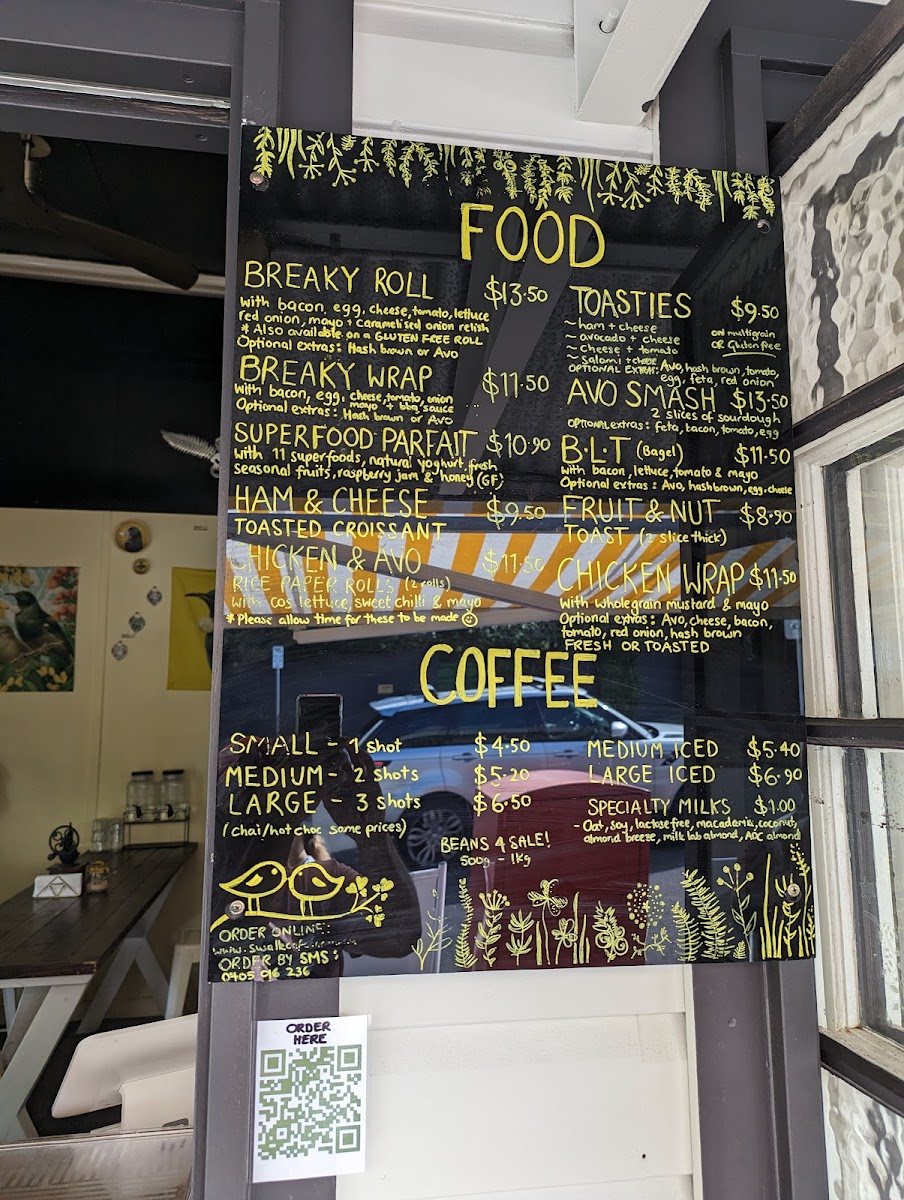 FOOD
BREAKY ROLL $13.50
with bacon, egg, cheese, tomato, lettuce
red onion, mayo + caramelised onion relish
* Also available on a GLUTEN FREE ROLL
Optional extras: Hash brown or Avo
BREAKY WRAP $11.50
with bacon, egg, cheese, tomato, onion
mayo + bbq sauce
Optional extras: Hash brown or Avo
SUPERFOOD PARFAIT $10.90
with 11 superfoods, natural yoghurt, fresh
seasonal fruits, raspberry jam & honey (GF)
HAM & CHEESE $9.50
TOASTED CROISSANT
CHICKEN & AVO $11.50
RICE PAPER ROLLS (2 rolls)
with cos lettuce, sweet chilli & mayo
* Please allow time for these to be made
TOASTIES $9.50
~ ham + cheese
~ avocado + cheese
~ Cheese + tomato
~ Salami + cheese
ON multigrain
OR Gluten free
OPTIONAL EXTRAS: Avo, hash brown, tomato,
egg, feta, red onion
AVO SMASH $13.50
2 slices of sourdough
OPTIONAL extras: feta, bacon, tomato, egg
B.L.T (Bagel) $11.50
with bacon, lettuce, tomato & mayo
Optional extras: Avo, hashbrown, egg, cheese
FRUIT & NUT $8.90
TOAST (2 slice thick)
CHICKEN WRAP $11.50
with wholegrain mustard & mayo
Optional extras: Avo, cheese, bacon,
tomato, red onion, hash brown
FRESH OR TOASTED
COFFEE
SMALL - 1 shot $4.50
MEDIUM - 2 shots $5.20
LARGE - 3 shots $6.50
(chai/hot choc same prices)
MEDIUM ICED $5.40
LARGE ICED $6.90
SPECIALTY MILKS $1.00
- Oat, soy, lactose free, macadamia, coconut,
almond breeze, milk lab almond, ADC almond
BEANS 4 SALE!
500g - 1kg
ORDER ONLINE:
ORDER BY SMS:
0405 016 236
ORDER
HERE